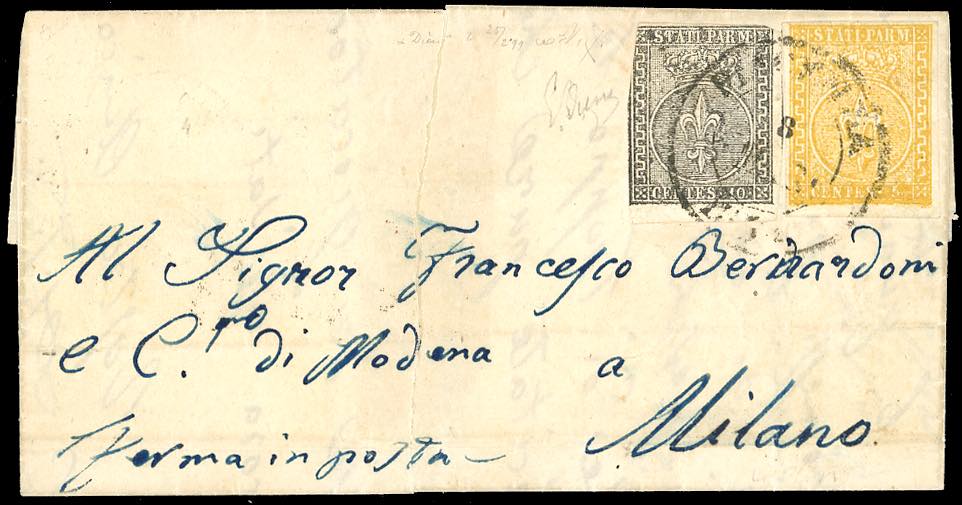 STATI PARM
CENTES. 10.
STATI PARM
CENTES. 5.
8
Al Signor Francesco Bernardoni
e C.no di Modena a
Milano
ferma in posta –